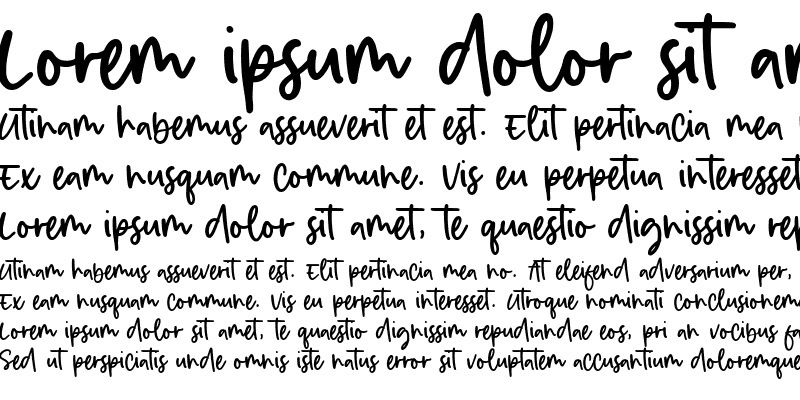 Lorem ipsum dolor sit am
Utinam habemus assueverit et est. Elit pertinacia mea
Ex eam nusquam commune. Vis eu perpetua interesset
Lorem ipsum dolor sit amet, te quaestio dignissim rep
Utinam habemus assueverit et est. Elit pertinacia mea no. At eleifend adversarium per,
Ex eam nusquam commune. Vis eu perpetua interesset. Utroque nominati conclusionem
Lorem ipsum dolor sit amet, te quaestio dignissim repudiandae eos, pri an vocibus fa
Sed ut perspiciatis unde omnis iste natus error sit voluptatem accusantium doloremque